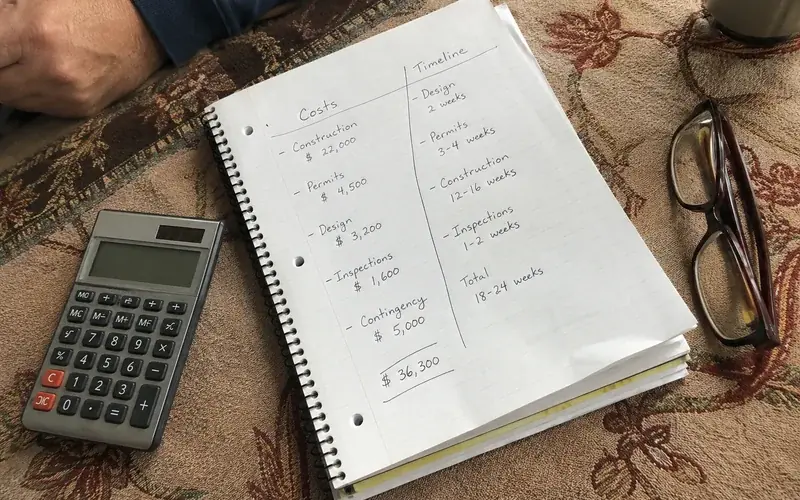 Costs
- Construction
$ 22,000
- Permits
$ 4,500
- Design
$ 3,200
- Inspections
$ 1,600
- Contingency
$ 5,000
$ 36,300
Timeline
- Design
2 weeks
- Permits
3-4 weeks
- Construction
12-16 weeks
- Inspections
1-2 weeks
Total
18-24 weeks
MC M- M= MF
7 8 9 ×
% 4 5 6 -
C 1 2 3
0 · = +